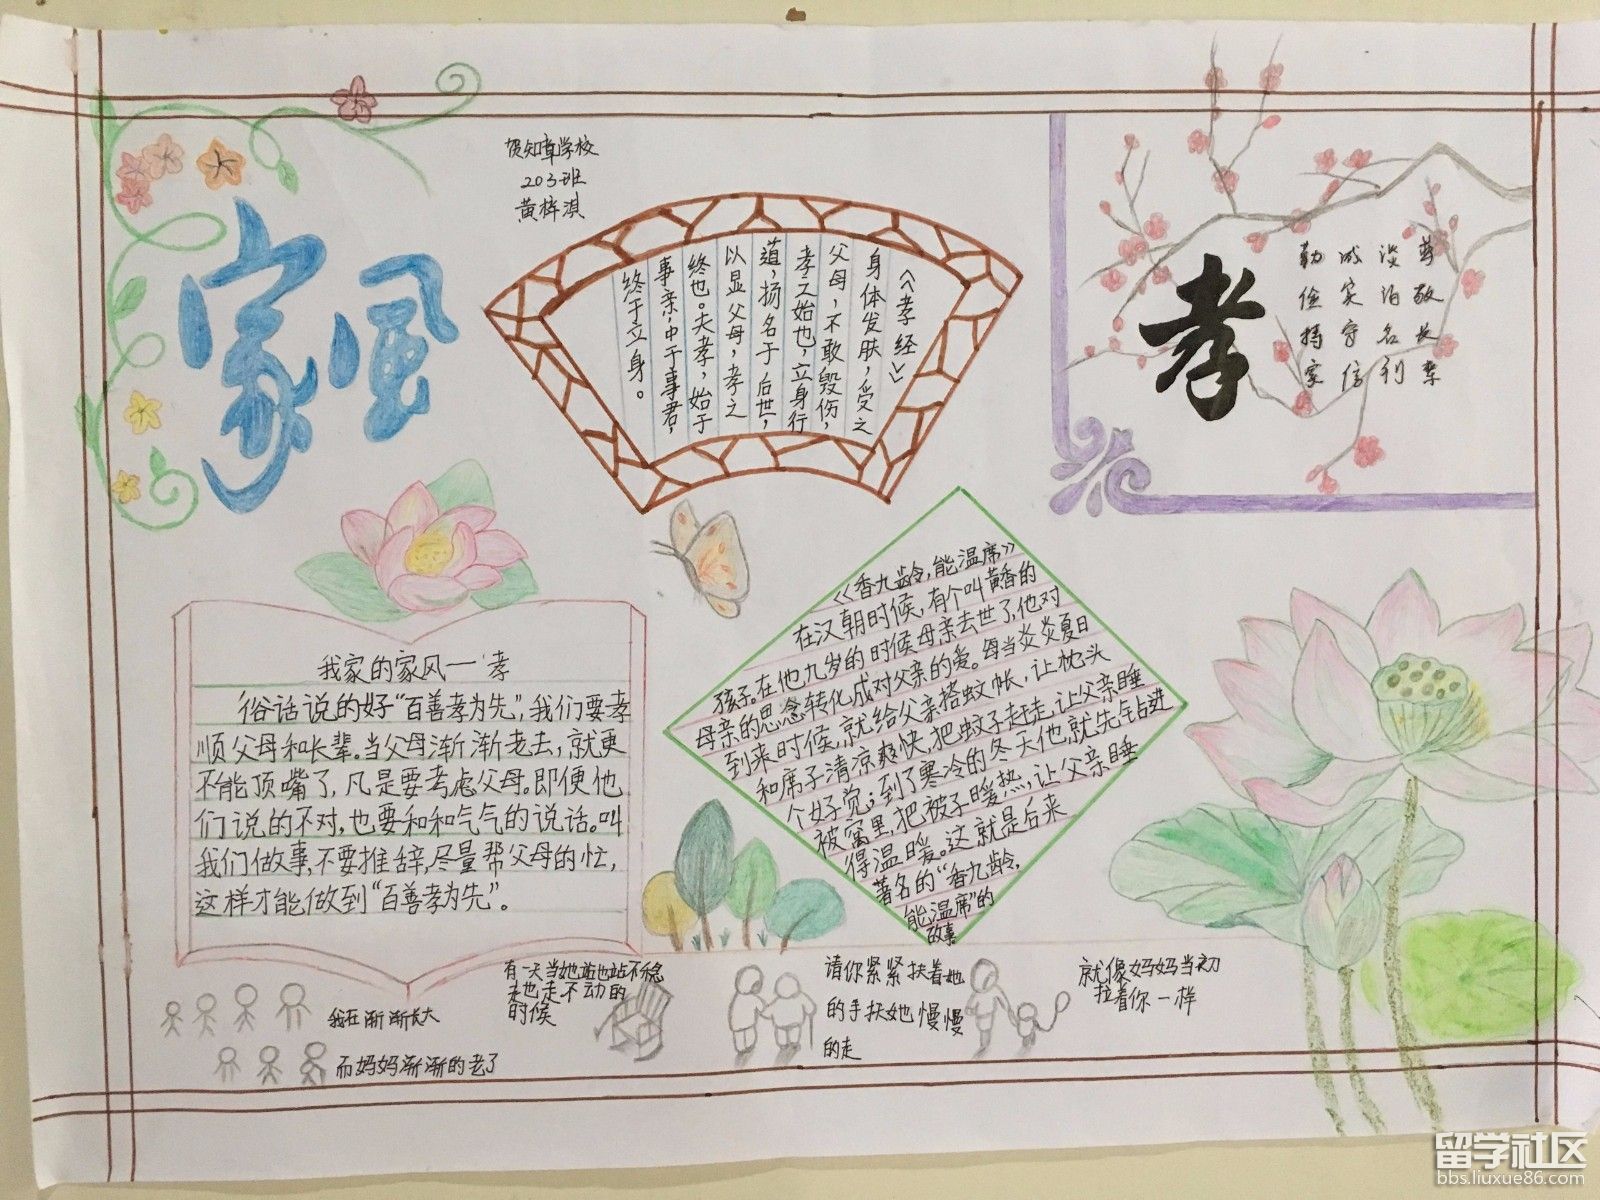 贺知章学校
203班
黄梓淇
家风
《孝经》
身体发肤,受之
父母,不敢毁伤,
孝之始也,立身行
道,扬名于后世,
以显父母,孝之
终也。夫孝,始于
事亲,中于事君,
终于立身。
孝
尊敬长辈
淡泊名利
诚实守信
勤俭持家
我家的家风一孝
俗话说的好“百善孝为先”,我们要孝
顺父母和长辈。当父母渐渐老去,就更
不能顶嘴了,凡是要考虑父母。即便他
们说的不对,也要和和气气的说话。叫
我们做事,不要推辞,尽量帮父母的忙,
这样才能做到“百善孝为先”。
《香九龄,能温席》
在汉朝时候,有个叫黄香的
孩子。在他九岁的时候母亲去世了,他对
母亲的思念转化成对父亲的爱。每当炎炎夏日
到来时候,就给父亲搭蚊帐,让枕头
和席子清凉爽快,把蚊子赶走,让父亲睡
个好觉;到了寒冷的冬天他,就先钻进
被窝里,把被子暖热,让父亲睡
得温暖。这就是后来
著名的“香九龄,
能温席”的
故事
我在渐渐长大
而妈妈渐渐的老了
有一天当她站也站不稳
走也走不动的
时候
请你紧紧扶着她
的手扶她慢慢
的走
就像妈妈当初
拉着你一样
留学社区
bbs.liuxue86.com